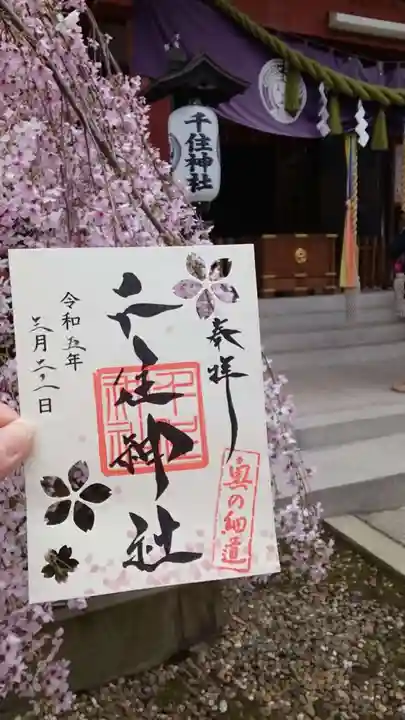 千住神社
奉拝
千住神社
令和五年
三月二十二日
奥の細道